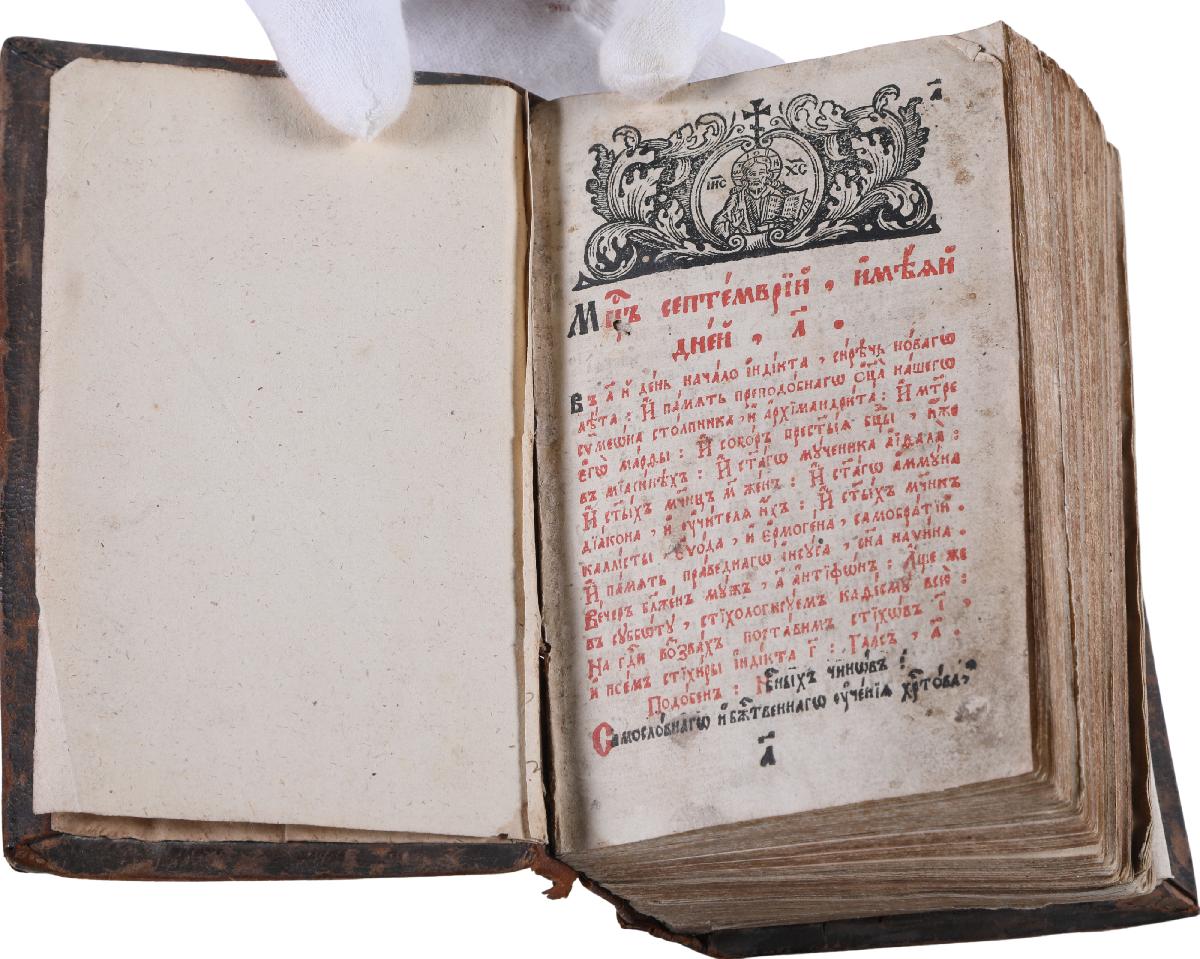 а҃
І҆И҃С Х҃С
Мц҃ъ септе́мврїй, и҆мѣ́ѧй
дне́й, л҃.
Въ а҃ й де́нь нача́ло і҆ндікта, си́рѣчь но́вагѡ
лѣ́та: И҆ па́мѧть преподо́бнагѡ ѻ҆ц҃а̀ на́шегѡ
сѷмеѡ́на столпника, и҆ а҆рхїмандри́та: И҆ мт҃ре
є҆гѡ̀ ма́рѳы: И҆ собо́ръ прест҃ы́ѧ бц҃ы, и҆́же
въ мїасинѣ́хъ: И҆ ст҃а́гѡ мꙋ́ченика а҆їѳала̀:
И҆ ст҃ы́хъ мч҃ницъ м҃ же́нъ: И҆ ст҃а́гѡ а҆ммꙋ́на
дїа́кона, и҆ ᲂу҆чи́телѧ и҆́хъ: И҆ ст҃ы́хъ мч҃никъ
каллі́сты є҆ѵо́да, и҆ є҆рмоге́на, самобра́тїй.
И҆ па́мѧть пра́веднагѡ і҆исꙋ́са, сн҃а наѵи́на.
Ве́черъ бл҃же́нъ мꙋ́жъ, а҃ а҆нтіфѡ́нъ: А҆́ще же
въ сꙋббѡ́тꙋ, стїхологисꙋ́емъ каѳі́смꙋ всю̀:
На гд҃и воззва́хъ поста́вимъ стїхѡ́въ і҃,
и҆ пѣ́емъ стїхи́ры і҆ндікта г҃: Гла́съ, а҃.
Подо́бенъ: Нбⷭ҇ныхъ чинѡ́въ:
Самосло́внагѡ и҆ бжⷭ҇твеннагѡ ᲂу҆че́нїѧ хрⷭ҇то́ва,
а҃